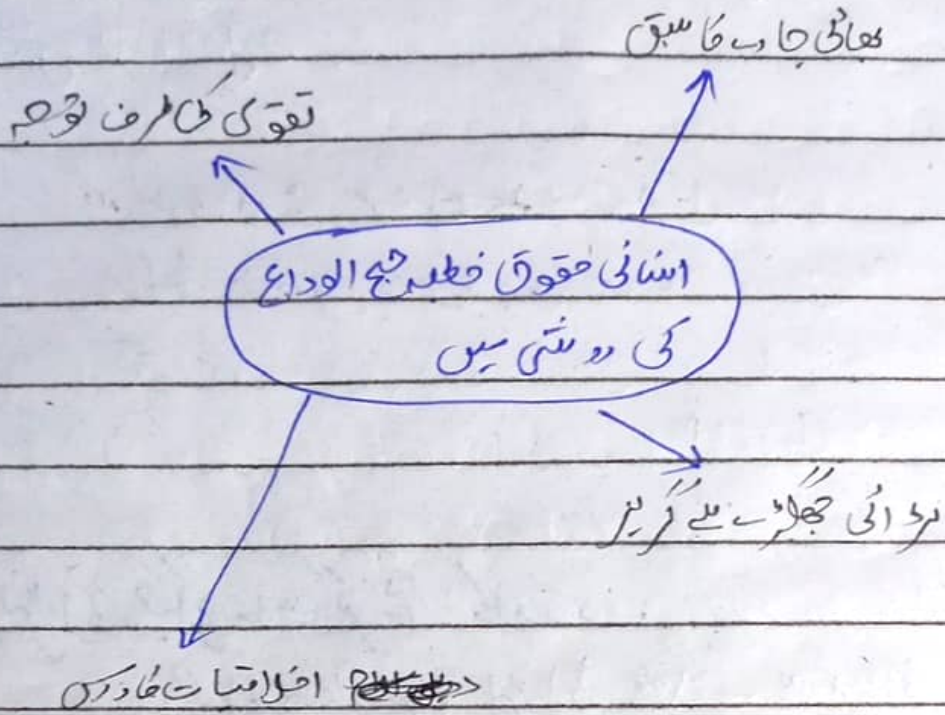 بھائی چارے کا سبق
تقوی کی طرف توجہ
انسانی حقوق خطبہ حج الوداع
کی روشنی میں
لڑائی جھگڑے سے گریز
اخلاقیات کا درس